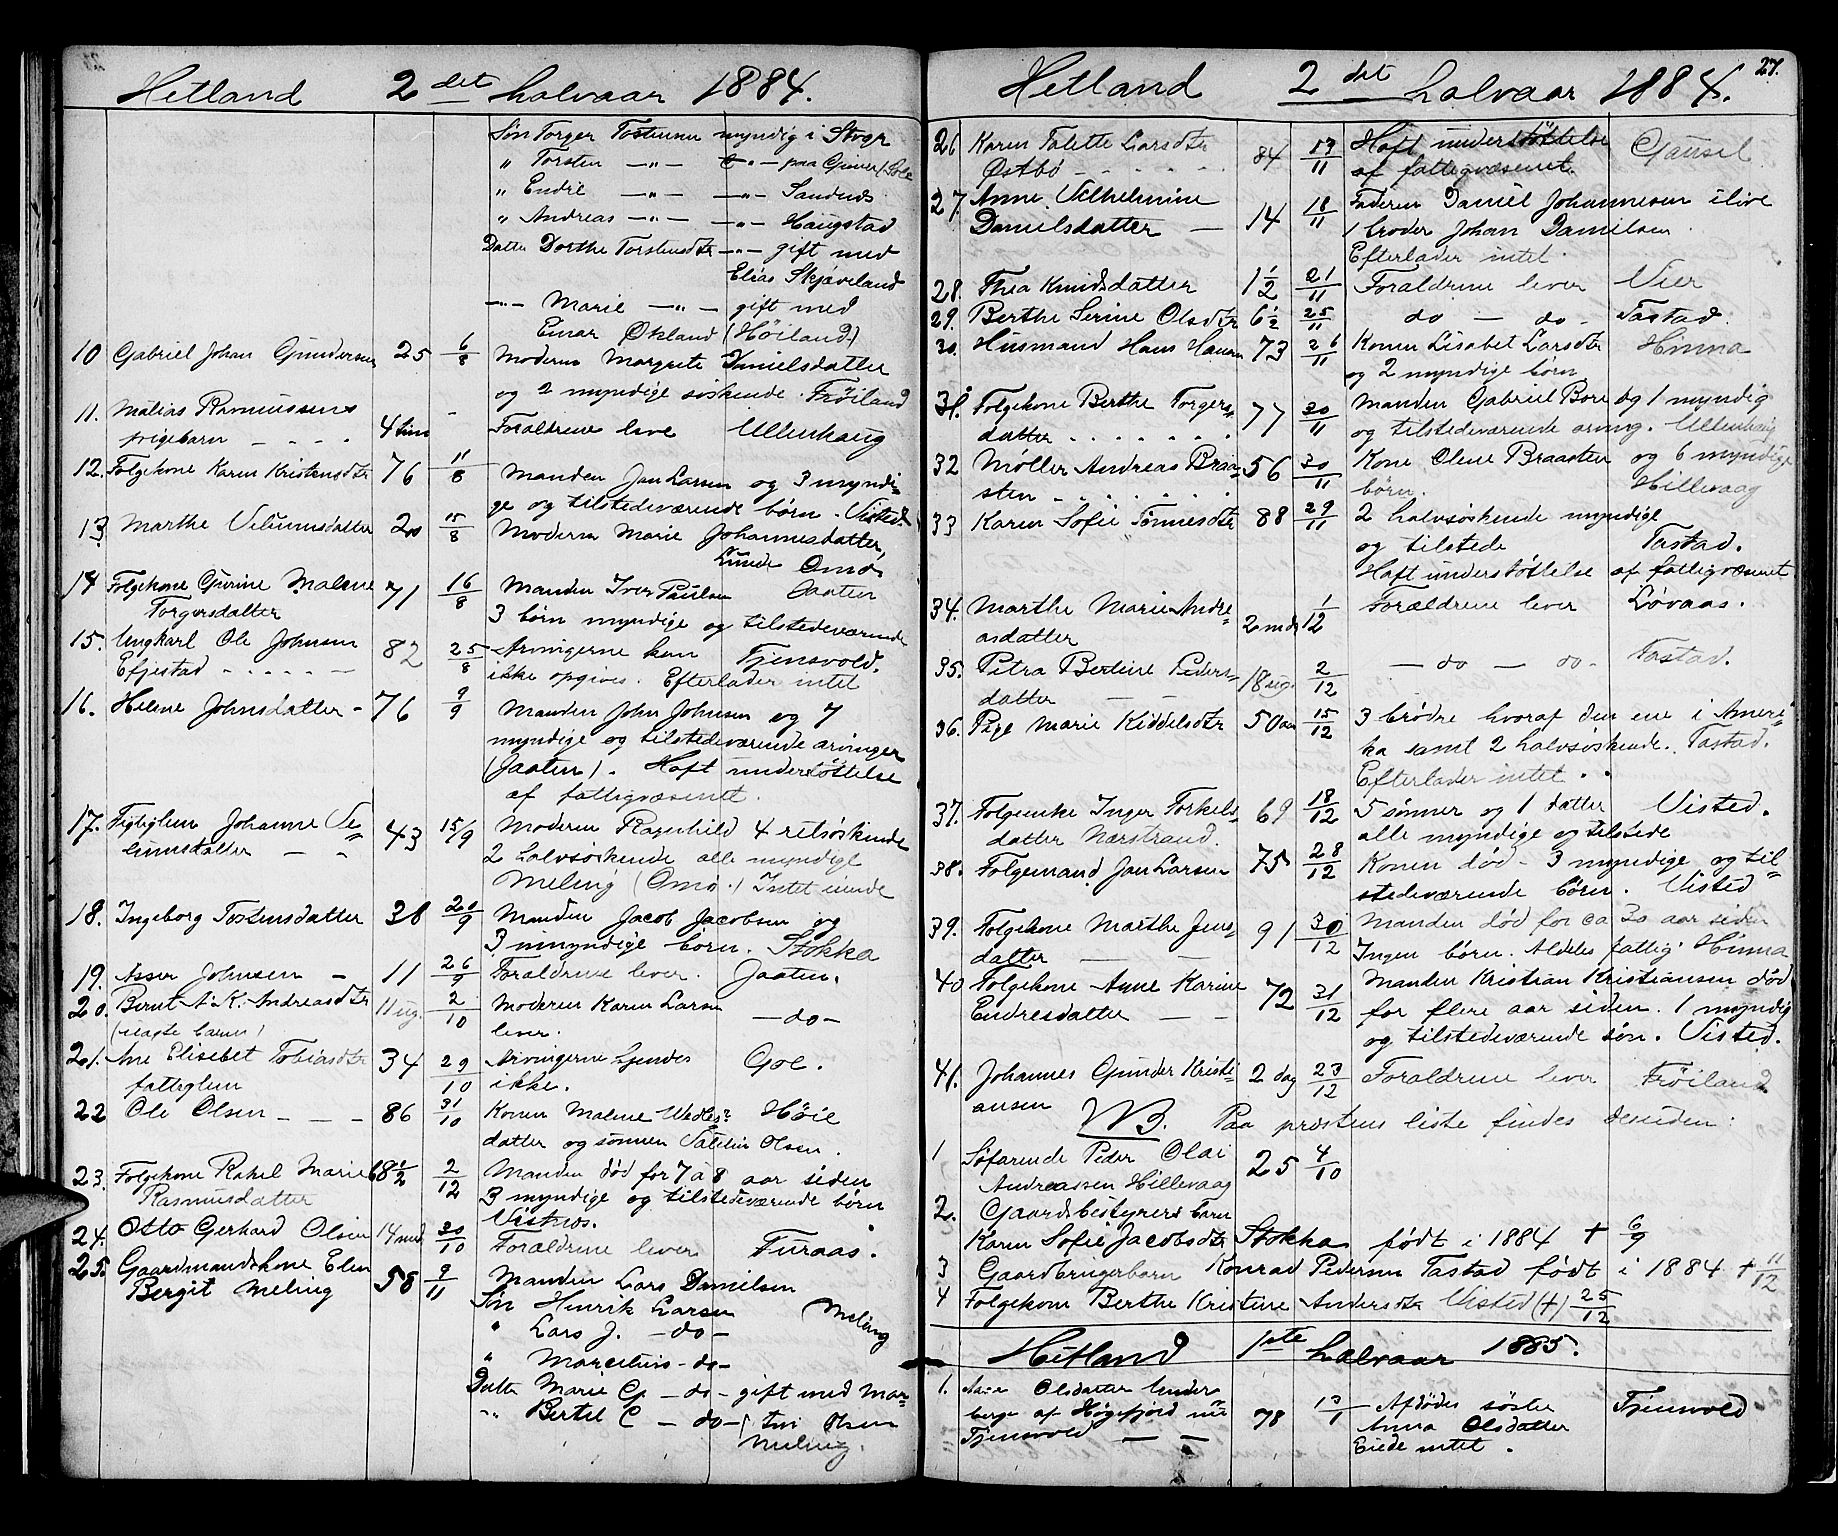 Hetland 2det halvaar 1884.
Søn Torger Tostensen myndig i Stvgr
" Torsten —"— —"— paa Gimre (Sole
" Endre —"— —"— Sandnæs
" Andreas —"— —"— Haugstad
Datter Dorthe Torstensdtr —"— gift med
Elias Skjæveland
—"— Marie —"— gift med
Einar Økland (Høiland)
10 Gabriel Johan Gundersen 25 6/8 Moderen Margrete Danielsdatter
og 2 myndige søskende. Frøiland
11. Matias Rasmussens
pigebarn - - - - 4 tim - Forældrene leve Ullenhaug
12. Følgekone Karen Kristensdtr 76 11/8 Manden Jan Larsen og 3 myndi-
ge og tilstedeværende børn. Visted
13. Marthe Velumsdatter 20 15/8 Moderen Marie Johannesdatter,
Lunde Omø.
14 Følgekone Gurine Malene 71 16/8 Manden Iver Paulsen Jaaten
Torgersdatter 3 børn myndige og tilstedeværende
15. Ungkarl Ole Johnsen 82 25/8 Arvingerne kan Tjensvold.
Efjestad - - - - - ikke opgives. Efterlader intet
16. Helene Johnsdatter - 76 9/9 Manden John Johnsen og 7
myndige og tilstedeværende arvinger
(Jaaten). Haft understøttelse
af fattigvæsenet.
17. Fattiglem Johanne Ve- 43 15/9 Moderen Ragnhild 4 retsøskende
lumsdatter — - 2 halvsøskende alle myndige
Meling (Omø.) Intet eiende
18. Ingeborg Tostensdatter 38 20/9 Manden Jacob Jacobsen og
3 umyndige børn. Stokka
19. Asser Johnsen - 11 26/9 Forældrene lever. Jaaten.
20. Bernt A. K. Andreasdtr 11 ug. 2/10 Moderen Karen Larsen —do—
(uægte barn) lever.
21. Ane Elisebet Tobiasdtr 34 29/10 Arvingerne kjendes Goe.
fattiglem ikke.
22 Ole Olsen - - - 86 31/10 Konen Malene Høie
datter og sønnen Olsen.
23. Følgekone Rakel Marie 68½ 2/12 Manden død for 7 à 8 aar siden
Rasmusdatter 3 myndige og tilstedeværende børn
Vistnes.
24. Otto Gerhard Olsen 14 mnd. 30/10 Forældrene lever Furaas.
25. Gaardmandskone Elen 58 9/11 Manden Lars Danielsen
Bergit Meling Søn Henrik Larsen (Meling
" Lars J. —do—
" —do—
Datter Marie G —do— gift med Mar-
—"— Bertel C —do— Olsen
Meling.
27.
Hetland 2det halvaar 1884.
26 Karen Talette Larsdtr 84 17/11 Haft understøttelse Gausel
Østbø - - - - - - af fattigvæsenet.
27. Anne Vilhelmine 14 18/11 Faderen Daniel Johannesen ilive
Danielsdatter — 1 broder Johan Danielsen
Efterlader intet.
28. Thea Knudsdatter 1½ 21/11 Forældrene lever Vier
29. Berthe Serine Olsdtr 6½ 25/11 do — do - Tastad.
30. Husmand Hans Hansen 73 26/11 Konen Lisabet Larsdtr Hinna
og 2 myndige børn
31. Følgekone Berthe Torgers- 77 30/11 Manden Gabriel Bore og 1 myndig
datter . . . . . . . og tilstedeværende arving. Ullenhaug
32 Møller Andreas Braa- 56 30/11 Kone Olene Braasten og 6 myndige
sten - . . . . . . børn. Hillevaag
33 Karen Sofie Tønnesdtr 88 29/11 2 halvsøskende myndige
og tilstede Tastad.
Haft understøttelse af fattigvæsenet
34. Marthe Marie Andre- 2 mdr 1/12 Forældrene lever Løvaas.
asdatter
35. Petra Bertine Peders- 18 ug. 2/12 — do — do - Tastad.
datter — —
36. Pige Marie Kiddelsdtr 50 aar 15/12 3 brødre hvoraf den ene i Ameri-
ka samt 2 halvsøskende. Tastad.
Efterlader intet . .
37. Følgenke Inger Torkels- 69 18/12 5 sønner og 1 datter Visted.
datter Nærstrand. alle myndige og tilstede
38. Følgemand Jan Larsen 75 28/12 Konen død - 3 myndige og til-
stedeværende børn. Visted
39. Følgekone Marthe Jens- 91 30/12 Manden død for ca 30 aar siden
datter — — Ingen børn. Aldeles fattig. Hinna
40 Følgekone Anne Karine 72 31/12 Manden Kristian Kristiansen død
Endresdatter — — for flere aar siden. 1 myndig
og tilstedeværende søn. Visted.
41. Johannes Gunder Kristi- 2 dag 23/12 Forældrene lever Frøiland
ansen
NB. Paa prestens liste findes desuden:
1 Søfarende Peder Olai 25 4/10
Andreassen Hillevaag
2. Gaardsbestyrers barn
Karen Sofie Jacobsdtr Stokka født i 1884 + 6/9
3 Gaardbrugerbarn Konrad Pedersen Tastad født i 1884 + 11/12
4 Følgekone Berthe Kristine Andersdtr Visted (+) 25/12
Hetland 1ste halvaar 1885.
1. Olsdatter Under-
berge af Høgefjord nu 78 13/1 Afdødes søster Tjensvold
Tjensvold — — Anna Olsdatter
Eiede intet.